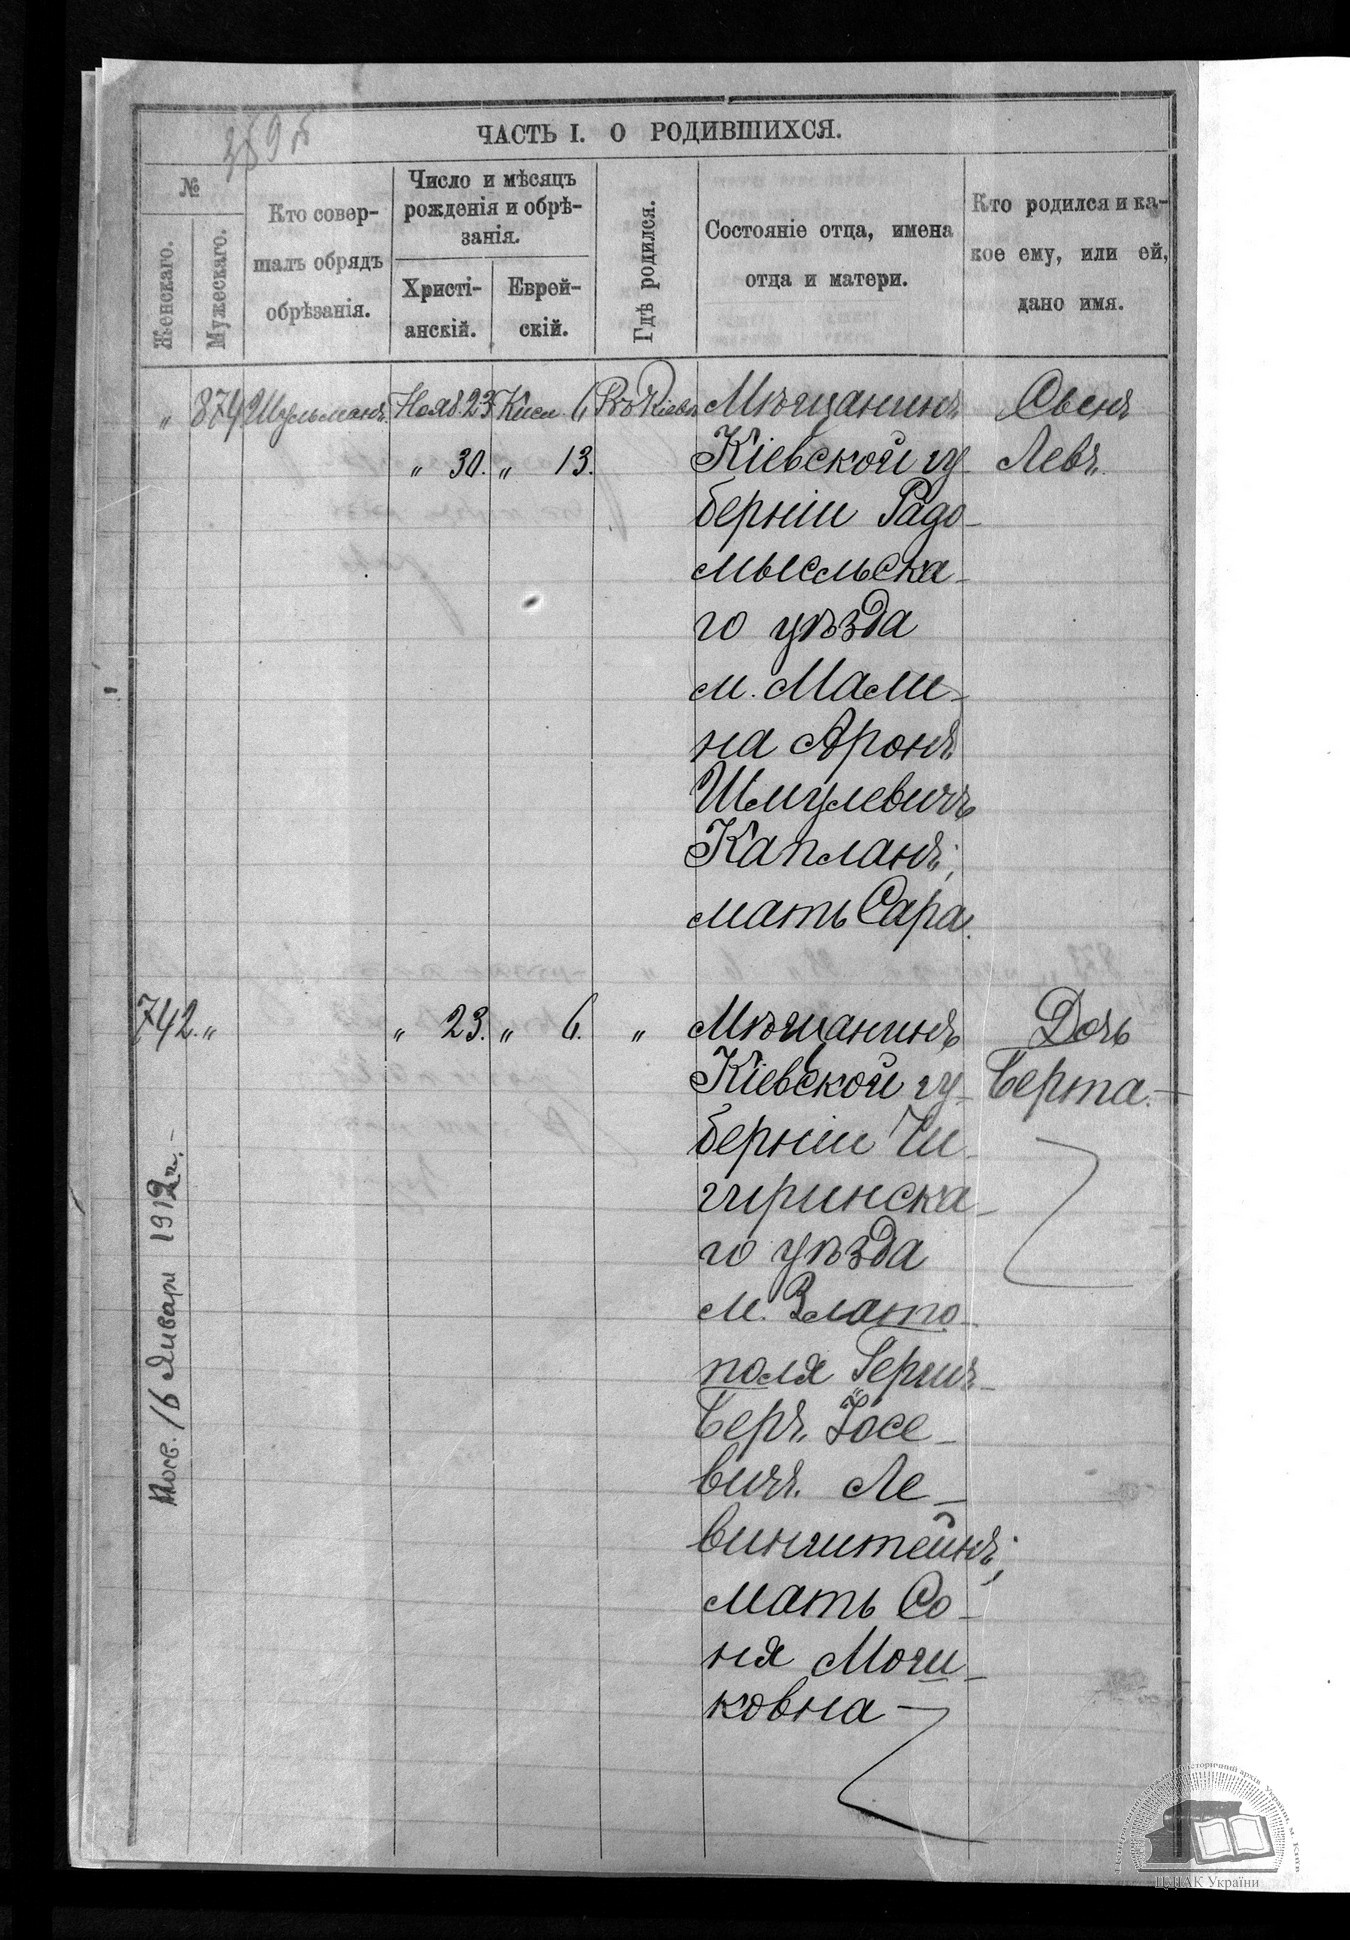 ЧАСТЬ I. О РОДИВШИХСЯ.
№
Женскаго.
Мужескаго.
Кто совер-
шалъ обрядъ
обрѣзанія.
Число и мѣсяцъ
рожденія и обрѣ-
занія.
Христі-
анскій.
Еврей-
скій.
Гдѣ родился.
Состояніе отца, имена
отца и матери.
Кто родился и ка-
кое ему, или ей,
дано имя.
„ 874 Шульманъ Нояб. 23 Кисл. 6 Въ г. Кіевѣ Мѣщанинъ Сынъ
„ 30. „ 13. Кіевской гу- Левъ.
берніи Радо-
мысльска-
го уѣзда
м. Мали-
на Аронъ
Шмулевичъ
Капланъ;
мать Сара.
742. „ „ 23. „ 6. „ Мѣщанинъ Дочь
Кіевской гу- Берта.
берніи Чи-
гиринска-
го уѣзда
м. Злато-
поля Гершъ-
Беръ Іосе-
вичъ Ле-
винштейнъ;
мать Со-
ня Мошковна
16 Января 1912 г.
ЦДІАК України